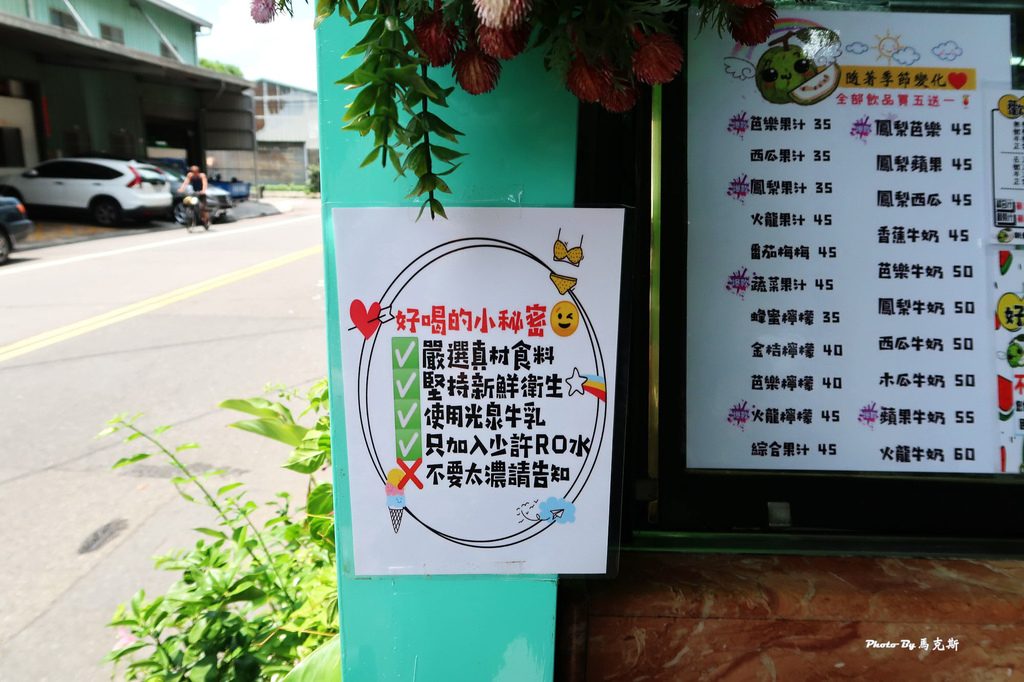 好喝的小秘密
嚴選真材食料
堅持新鮮衛生
使用光泉牛乳
只加入少許RO水
不要太濃請告知
隨著季節變化
全部飲品買五送一
芭樂果汁 35
西瓜果汁 35
鳳梨果汁 35
火龍果汁 45
番茄梅梅 45
蔬菜果汁 45
蜂蜜檸檬 35
金桔檸檬 40
芭樂檸檬 40
火龍檸檬 45
綜合果汁 45
鳳梨芭樂 45
鳳梨蘋果 45
鳳梨西瓜 45
香蕉牛奶 45
芭樂牛奶 50
鳳梨牛奶 50
西瓜牛奶 50
木瓜牛奶 50
蘋果牛奶 55
火龍牛奶 60
好
Photo By 馬克斯